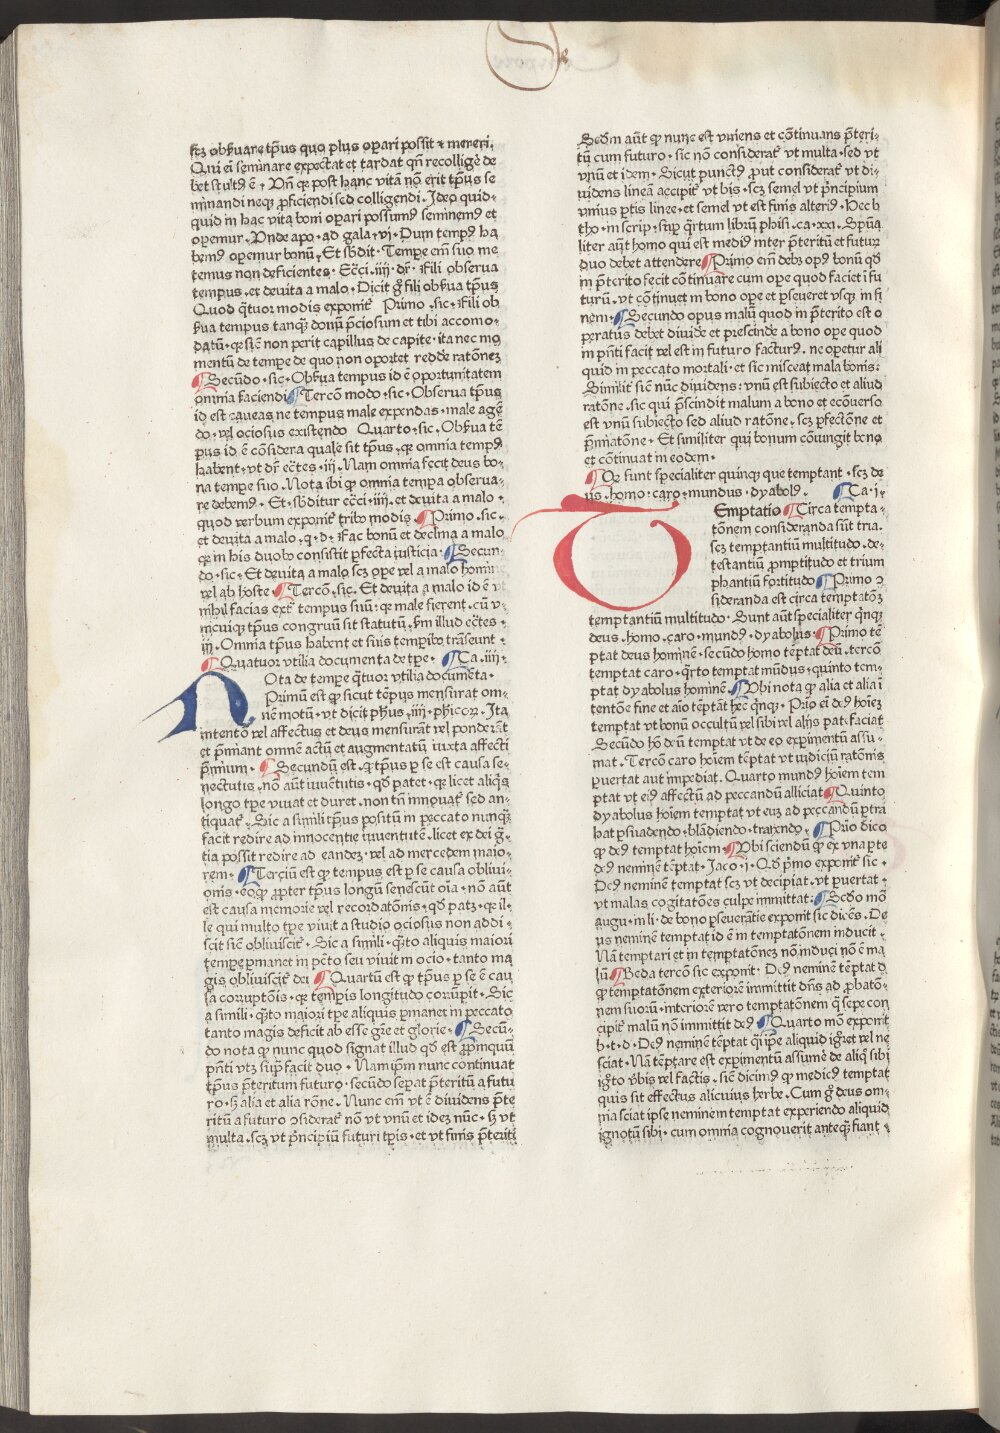 De
scz obseruare tp̄us quo plus opari possit ⁊ mereri.
Qui ei seminare expectat et tardat qn̄ recollige de
bet stultꝰ ē. Vn̄ qꝛ post hanc vitā nō erit tp̄us se
minandi neqꝫ ꝓficiendi sed colligendi. Ideo quid-
quid in hac vita boni opari possumꝰ seminemꝰ et
opemur. Vnde apo. ad gala. vi. Dum tempꝰ ha
bemꝰ opemur bonū. Et s̄bdit. Tempe em̄ suo me
temus non deficientes. Ecci. iiij. dr̄. Fili obserua
tempus. et deuita a malo. Dicit ḡ fili obserua tp̄us
Quod q̄tuor modis exponit᷑ Primo. sic. Fili ob
serua tempus tanqꝫ donū p̄ciosum et tibi accomo-
datū. qꝛ sic̄ non perit capillus de capite. ita nec mo
mentū de tempe de quo non oportet redde ratonez
Secūdo. sic. Obserua tempus id ē oportunitatem
omnia faciendi Tercō modo. sic. Obserua tp̄us
id est caueas ne tempus male expendas. male agē
do. vel ociosus existendo Quarto. sic. Obserua tē
pus id ē considera quale sit tp̄us. qꝛ omnia tempꝰ
habent. vt dr̄ ec̄tes. iij. Nam omnia fecit deus bo-
na tempe suo. Nota ibi qꝛ omnia tempa obserua-
re debemꝰ. Et. s̄bditur ecci. iiij. et deuita a malo.
quod verbum exponit᷑ tribꝰ modis. Primo. sic.
et deuita a malo. q. d. fac bonū et declina a malo
qꝛ in his duobꝰ consistit perfecta iusticia. Secun-
do. sic. Et deuita a malo scz ope vel a malo homine
vel ab hoste. Tercō. sic. Et deuita a malo id ē vt
nihil facias ext᷑ tempus suū. qꝛ male fierent. cū v-
nicuiqꝫ tp̄us congruū sit statutū. scdm illud ec̄tes.
iij. Omnia tp̄us habent et suis tempibꝰ trāseunt.
Quatuor vtilia documenta de tpe. Ca. iiij.
Nota de tempe q̄tuor vtilia documēta.
Primū est qꝫ sicut tēpus mensurat om-
nē motū. vt dicit phus. iiij. phicoꝝ. Ita
intentō vel affectus et deus mensurat vel ponderat
et p̄miant omnē actū et augmentatū iuxta affecti
p̄mium. Secundū est. qꝫ tp̄us p se est causa se-
nectutis. nō aūt iuuentutis. qd̄ patet. qꝛ licet aliqꝰs
longo tpe viuat et duret. non tn̄ innouat᷑ sed an-
tiquat᷑. Sic a simili tp̄us positū in peccato nunqꝫ
facit redire ad innocentie iuuentutē. licet ex dei ḡ-
tia possit redire ad eandez. vel ad mercedem maio-
rem. Terciū est qꝫ tempus est p se causa obliui-
onis. eo qꝫ ꝓpter tp̄us longū senescūt oīa. nō aūt
est causa memorie vel recordatōnis. qd̄ patz. qꝛ il-
le qui multo tpe viuit a studio ociosus non addi-
scit sic̄ obliuiscit᷑. Sic a simili. q̄to aliquis maiori
tempe p̄manet in pctō seu viuit in ocio. tanto ma
gis obliuiscit᷑ dei Quartū est qꝫ tp̄us p se ē cau
sa corruptōis. qꝛ tempis longitudo corrūpit. Sic
a simili. q̄to maiori tpe aliquis p̄manet in peccato
tanto magis deficit ab esse gr̄e et glorie. Secū-
do nota qꝫ nunc quod signat illud qd̄ est ꝓpinquū
pn̄ti vtꝫ sup̄ facit duo. Nam ip̄m nunc continuat
tp̄us p̄teritum futuro. secūdo sepat p̄teritū a futu
ro. sꝫ alia et alia rōne. Nunc em̄ vt ē diuidens p̄te
ritū a futuro ↄsiderat᷑ nō vt vnū et idez nūc. sꝫ vt
multa. scz vt p̄ncipiū futuri tpis. et vt finis p̄teriti
Scdm aūt qꝫ nunc est vniens et cōtinuans p̄teri-
tū cum futuro. sic nō considerat᷑ vt multa. sed vt
vnū et idem. Sicut punctꝰ ꝓut considerat᷑ vt di-
uidens lineā accipit᷑ vt bis. scz semel vt p̄ncipium
vnius ptis linee. et semel vt est finis alteriꝰ. Hec b
tho. in scrip. sup q̄rtum librū phisi. ca. xxi. Spūa
liter aūt homo qui est mediꝰ inter p̄teritū et futur
duo debet attendere Primo em̄ debꝫ opꝰ bonū qd̄
in p̄terito fecit cōtinuare cum ope quod faciet i fu
turū. vt cōtinuet in bono ope et pseueret vsqꝫ in fi
nem. Secundo opus malū quod in p̄terito est o
peratus debet diuide et prescinde a bono ope quod
in pn̄ti facit vel est in futuro facturꝰ. ne opetur ali
quid in peccato mortali. et sic misceat mala bonis.
Similit᷑ sic̄ nūc diuidens. vnū est subiecto et aliud
ratōne. sic qui p̄scindit malum a bono et ecōuerso
est vnū subiecto sed aliud ratōne. scz pfectōne et
p̄miatōne. Et similiter qui bonum cōiungit bono
et cōtinuat in eodem.
Qꝫ sunt specialiter quinqꝫ que temptant. scz de
us. homo. caro. mundus. dyabolꝰ. Ca. i.
Temptatio Circa tempta-
tōnem consideranda sūt tria.
scz temptantiū multitudo. de-
testantiū ꝓmptitudo et trium
phantiū fortitudo Primo ↄ
sideranda est circa temptatōꝫ
temptantium multitudo. Sunt aūt specialiter qnqꝫ
deus. homo. caro. mundꝰ. dyabolus. Primo tē
ptat deus hominē. secūdo homo tēptat deū. tercō
temptat caro. q̄rto temptat mūdus. quinto tem-
ptat dyabolus hominē. Vbi nota qꝫ alia et alia ī
tentōne fine et aīo tēptāt hec qnqꝫ. Prio ei deꝰ hoīez
temptat vt bonū occultū vel sibi vel alijs pateꝫ faciat
Secūdo hō deū temptat vt de eo expimentū assu-
mat. Tercō caro hoīem tēptat vt iudiciū ratōnis
puertat aut impediat. Quarto mundꝰ hoīem tem
ptat vt eiꝰ affectū ad peccandū alliciat Quinto
dyabolus hoīem temptat vt euꝫ ad peccandū ptra
hat psuadendo. blādiendo. traxendo. Prio dico
qꝫ deꝰ temptat hoīem. Vbi sciendū qꝫ ex vna pte
deꝰ neminē tēptat. Jaco. i. Qd̄ p̄mo exponit᷑ sic.
Deꝰ neminē temptat scz vt decipiat. vt puertat.
vt malas cogitatōnes culpe immittat. Scdo mō
augu. in li. de bono pseuerātie exponit sic dicēs. De
us neminē temptat id ē in temptatōnem inducit.
Nā temptari et in temptatōnez nō induci nō ē ma
lū. Beda tercō sic exponit. Deꝰ neminē tēptat
qꝫ temptatōnem exteriorē immittit dn̄s ad ꝓbatō-
nem suorū. interiorē vero temptatōnem q̄ sepe con
cipit᷑ malū nō immittit deꝰ Quarto mō exponit᷑
b. t. d. Deꝰ neminē tēptat q̄si ip̄e aliquid ignoret vel ne
sciat. Nā tēptare est expimentū assumē de aliq̄ sibi
ignoto vbis vel factis. sic̄ dicimꝰ qꝫ medicꝰ temptat
quis sit effectus alicuius herbe. Cum ḡ deus om-
nia sciat ipse neminem temptat experiendo aliquid
ignotū sibi. cum omnia cognouerit anteqꝫ fiant.